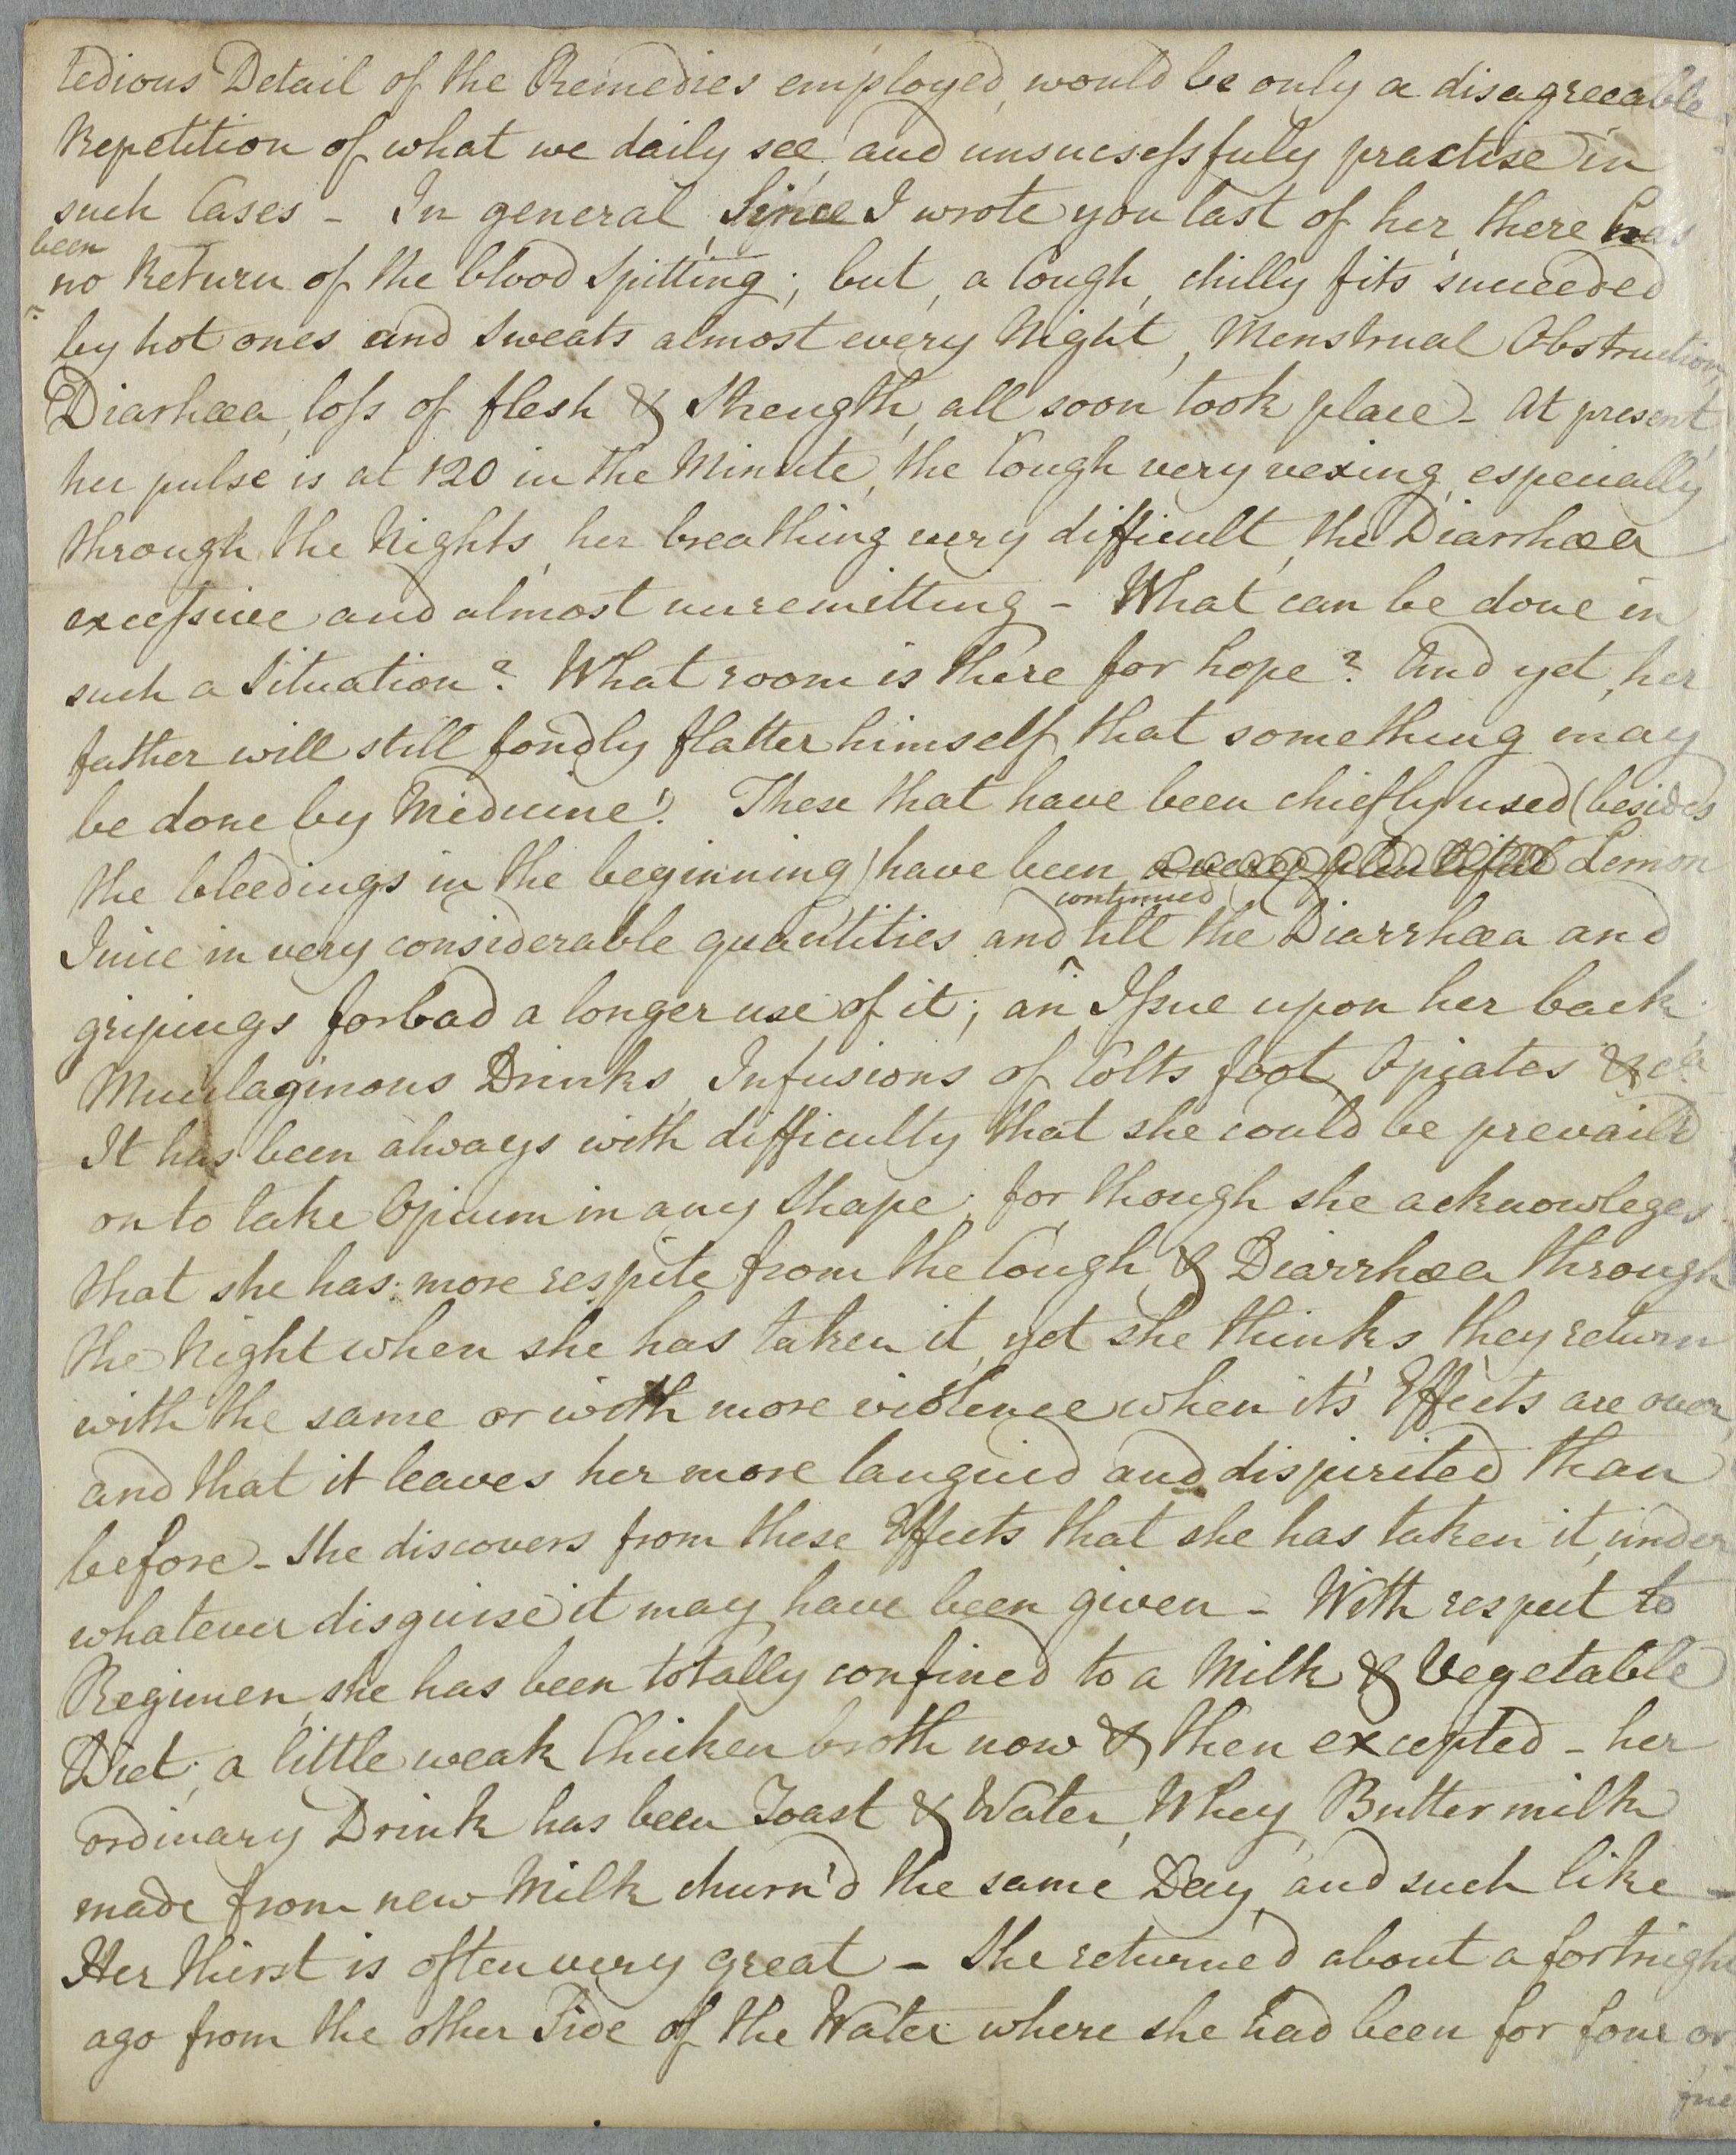 tedious Detail of the Remedies employed, would be only a disagreeable
Repetition of what we daily see, and unsucsessfuly practise in
such Cases - In general Since I wrote you last of her, there has
been
no Return of the blood Spitting; but, a Cough, chilly fits succeeded
by hot ones and Sweats almost every Night, Menstrual Obstruction,
Diarhæa, loss of flesh & Strength, all soon took place - At present
her pulse is at 120 in the Minute, the Cough very vexing, especially
through the Nights, her breathing very difficult, the Diarrhæa
excessive and almost unremitting - What can be done in
such a Situation? What room is there for hope? And yet, her
father will still fondly flatter himself, that something may
be done by Medicine! These that have been chiefly used (besides
the bleedings in the beginning) have been a very plentiful Lemon
continued
Juice in very considerable quantities and till the Diarrhæa and
gripings forbad a longer use of it; an Issue upon her back
Mucilaginous Drinks, Infusions of Colts foot, Opiates &ca
It has been always with difficulty that she could be prevaild
on to take Opium in any Shape; for, though she acknowleges
that she has more respite from the Cough & Diarrhæa through
the Night when she has taken it, yet she thinks they return
with the same or with more violence when its' Effects are over,
and that it leaves her more languid and dispirited than
before - She discovers from these Effects that she has taken it, under
whatever disguise it may have been given - With respect to
Regimen, she has been totally confined to a Milk & Vegetable
Diet; a little weak Chicken broth now & then excepted - her
ordinary Drink has been Toast & Water, Whey, Buttermilk
made from new Milk churn'd the same Day, and such like -
Her thirst is often very great - She returned about a fortnight
ago from the other Side of the Water where she had been for four or
five